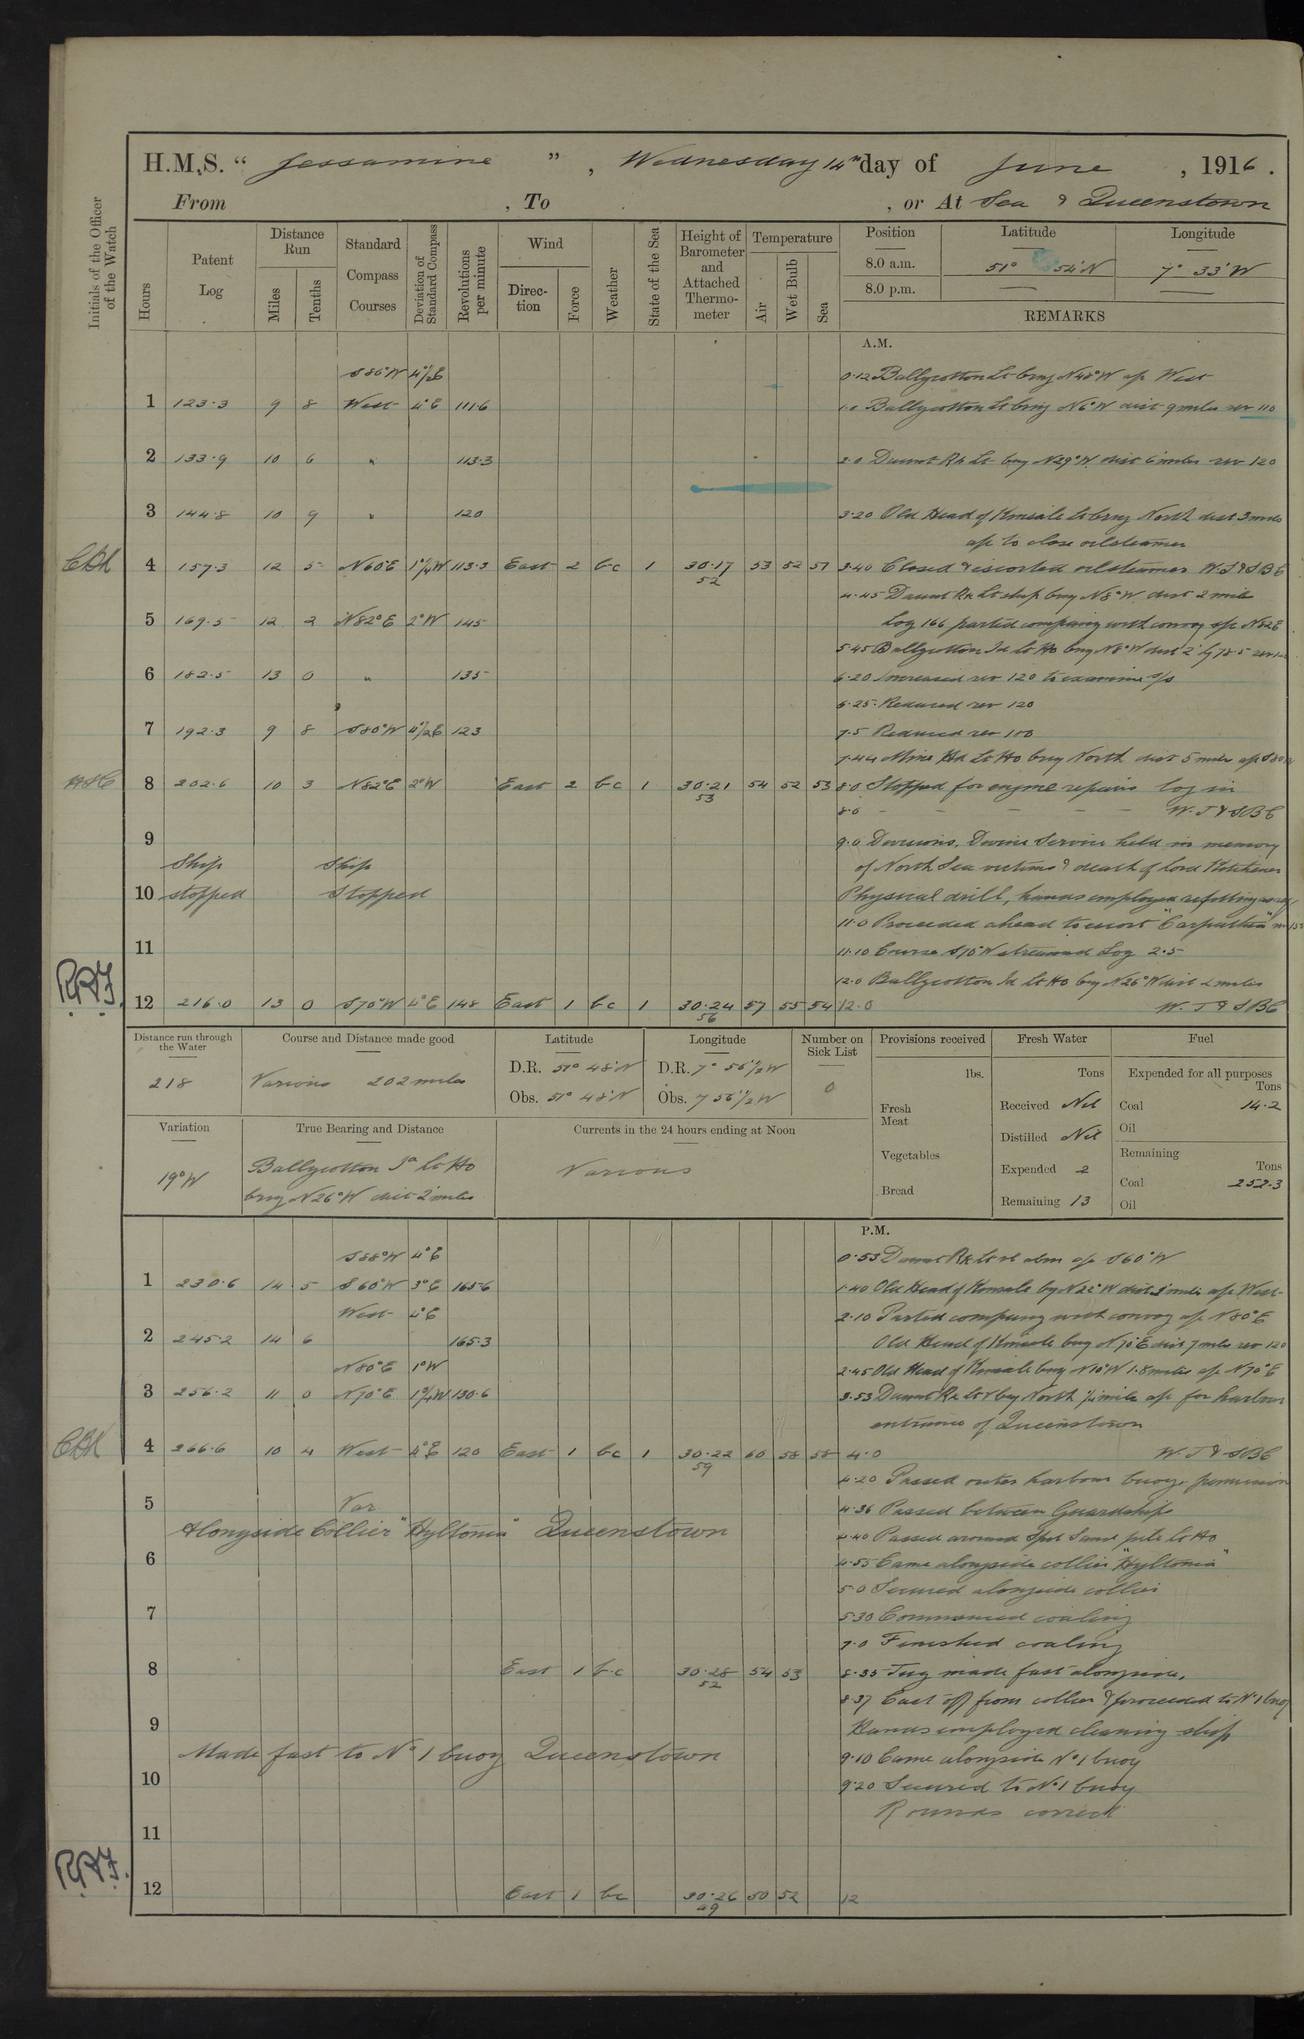 H.M.S. “ Jessamine ” , Wednesday 14th day of June , 1916 .
From , To , or At Sea & Queenstown
Initials of the Officer of the Watch
Hours
Patent Log
Distance Run
Miles
Tenths
Standard Compass Courses
Deviation of Standard Compass
Revolutions per minute
Wind
Direction
Force
Weather
State of the Sea
Height of Barometer and Attached Thermometer
Temperature
Air
Wet Bulb
Sea
Position Latitude Longitude
8.0 a.m. 51° 54'N 7° 33'W
8.0 p.m. — —
REMARKS
A.M.
S 86°W 4½E
0.12 Ballycotton Lt brng N48°W a/c West
1 123.3 9 8 West 4°E 111.6
1.0 Ballycotton Lt brng N6°W dist 9 miles rev 110
2 133.9 10 6 " 113.3
2.0 Daunt Rk Lt brng N29°W dist 6 miles rev 120
3 144.8 10 9 " 120
3.20 Old Head of Kinsale Lt brng North dist 3 miles
a/c to close oilsteamer
4 157.3 12 5 N60°E 1¼W 113.3 East 2 bc 1 30.17 53 52 51
52
3.40 Closed & escorted oilsteamer W.T & SBE
4.45 Daunt Rk Lt ship brng N8°W dist 2 miles
5 169.5 12 2 N82°E 2°W 145
Log 166 parted company with convoy a/c N82E
5.45 Ballycotton Id Lt Ho brng N8°W dist 2'
6 182.5 13 0 " 135
6.20 Increased rev 120 to examine s/s
6.25 Reduced rev 120
7 192.3 9 8 S80°W 4½E 123
7.5 Reduced rev 100
7.44 Mine Hd Lt Ho brng North dist 5 miles a/c S80W
8 202.6 10 3 N82°E 2°W East 2 bc 1 30.21 54 52 53
53
8.0 Stopped for engine repairs log in
8.0 - - - - - W.T & SBE
9
9.0 Divisions, Divine Service held in memory
Ship Ship
of North Sea victims & death of Lord Kitchener
10 stopped Stopped
Physical drill, hands employed refitting
11.0 Proceeded ahead to escort "Carpathia"
11
11.10 Course S70°W streamed Log 2.5
12.0 Ballycotton Id Lt Ho brg N26°W dist 2 miles
12 216.0 13 0 S70°W 4°E 148 East 1 bc 1 30.24 57 55 54
56
12.0 W.T & SBE
Distance run through the Water
218
Course and Distance made good
Various 202 miles
Latitude
D.R. 51° 48'N
Obs. 51° 48'N
Longitude
D.R. 7° 56½'W
Obs. 7 56½'W
Number on Sick List
0
Provisions received
lbs.
Fresh Meat
Vegetables
Bread
Fresh Water
Tons
Received Nil
Distilled Nil
Expended 2
Remaining 13
Fuel
Expended for all purposes
Tons
Coal 14.2
Oil
Remaining
Tons
Coal 252.3
Oil
Variation
19°W
True Bearing and Distance
Ballycotton Id Lt Ho
brng N26°W dist 2 miles
Currents in the 24 hours ending at Noon
Various
P.M.
S88°W 4°E
0.53 Daunt Rk Lt vl abm a/c S60°W
1 230.6 14 5 S60°W 3°E 165.6
1.40 Old Head of Kinsale brg N22°W dist 3 miles a/c West
West 4°E
2.10 Parted company with convoy a/c N80°E
2 245.2 14 6 165.3
Old Head of Kinsale brng N70°E dist 7 miles rev 120
N80°E 1°W
2.45 Old Head of Kinsale brng N10°W 1.8 miles a/c N70°E
3 256.2 11 0 N70°E 1¼W 130.6
3.53 Daunt Rk Lt V brg North ¼ mile a/c for harbour
entrance of Queenstown
4 266.6 10 4 West 4°E 120 East 1 bc 1 30.22 60 58 58
59
4.0 W.T & SBE
4.20 Passed outer harbour buoys
5 Var
4.36 Passed between Guardships
Alongside Collier "Hyltonia" Queenstown
4.40 Passed around Spit Sand pile Lt Ho
6
4.55 Came alongside collier "Hyltonia"
5.0 Secured alongside collier
7
5.30 Commenced coaling
7.0 Finished coaling
8 East 1 bc 30.28 54 53
52
8.35 Tug made fast alongside,
8.37 Cast off from collier & proceeded to No 1 buoy
9
Hands employed cleaning ship
Made fast to No 1 buoy Queenstown
9.10 Came alongside No 1 buoy
10
9.20 Secured to No 1 buoy
Rounds correct
11
12 East 1 bc 30.26 50 52
49
12